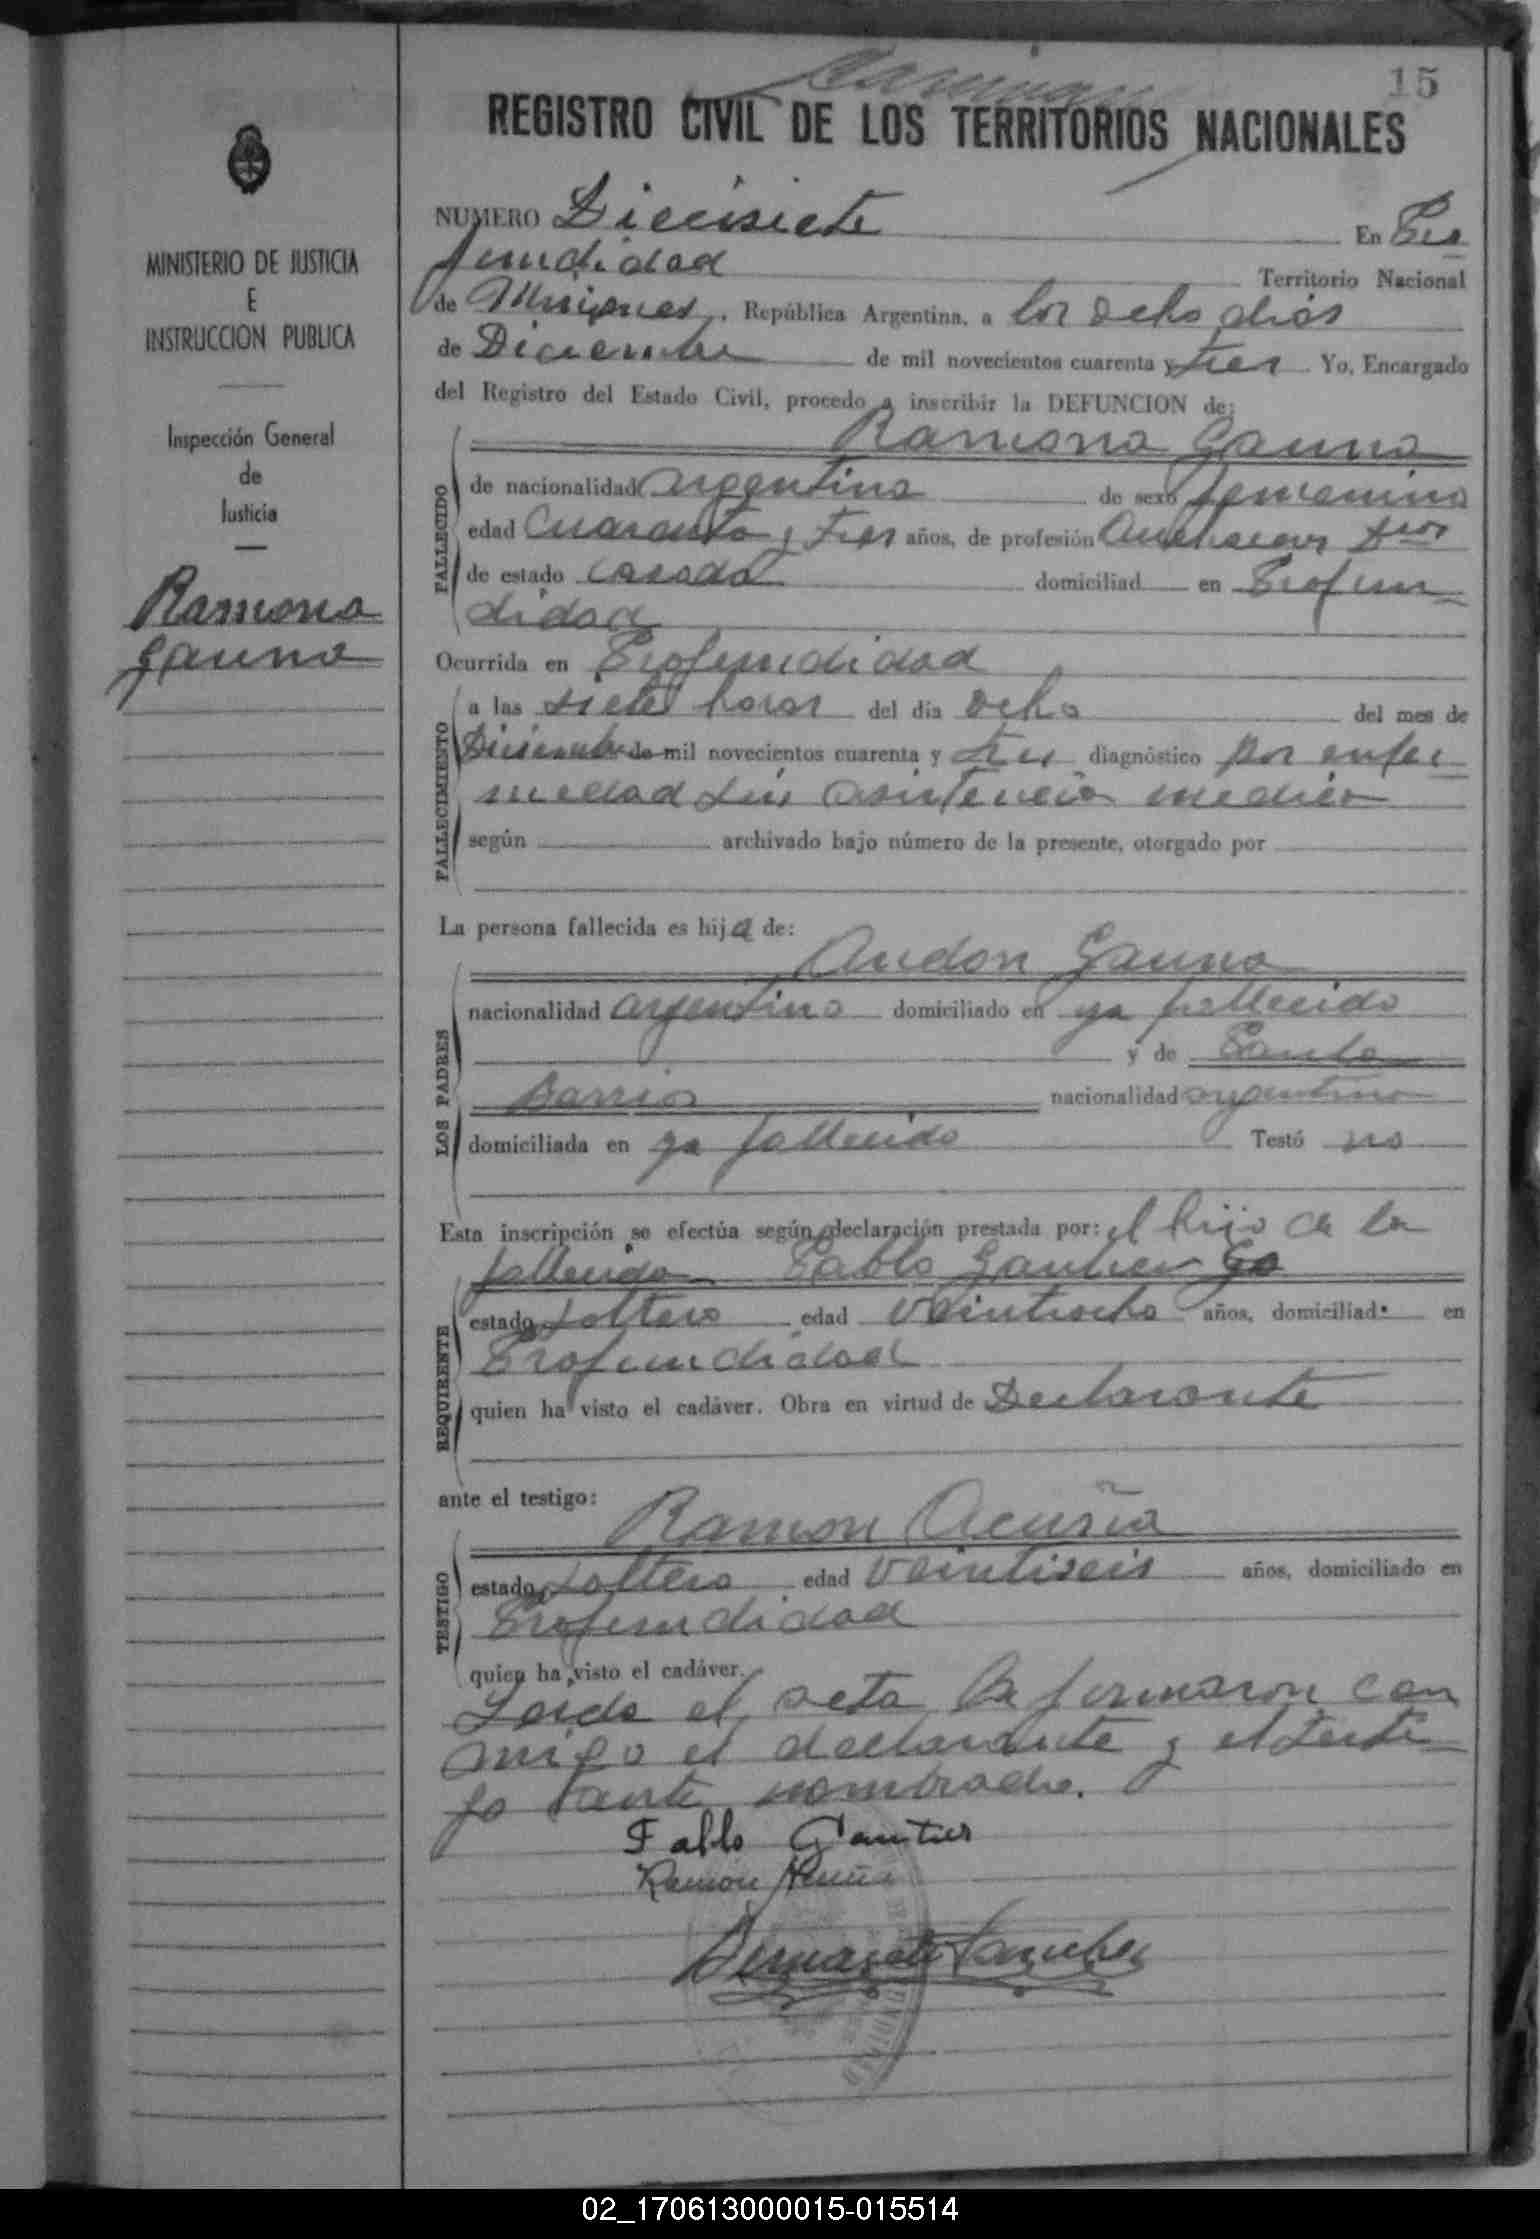 15
REGISTRO CIVIL DE LOS TERRITORIOS NACIONALES
MINISTERIO DE JUSTICIA
E
INSTRUCCION PUBLICA
Inspección General
de
Justicia
Ramona
Gauna
NUMERO Diecisiete En Pro
fundidad Territorio Nacional
de Misiones, República Argentina, a los ocho dias
de Diciembre de mil novecientos cuarenta y tres Yo, Encargado
del Registro del Estado Civil, procedo a inscribir la DEFUNCION de:
Ramona Gauna
FALLECIDO
de nacionalidad argentina de sexo femenino
edad cuarenta y tres años, de profesión
de estado casada domiciliad en Profun
didad
Ocurrida en Profundidad
FALLECIMIENTO
a las siete horas del día ocho del mes de
Diciembre de mil novecientos cuarenta y tres diagnóstico por enfer
medad sin asistencia medica
según archivado bajo número de la presente, otorgado por
La persona fallecida es hija de:
Audon Gauna
LOS PADRES
nacionalidad argentino domiciliado en ya fallecido
y de
Barrios nacionalidad argentina
domiciliada en ya fallecida Testó no
Esta inscripción se efectúa según declaración prestada por: el hijo de la
fallecida Pablo Gautier Ga
REQUIRENTE
estado soltero edad veintiocho años, domiciliad en
Profundidad
quien ha visto el cadáver. Obra en virtud de Declarante
ante el testigo:
Ramon Acuña
TESTIGO
estado soltero edad veintiseis años, domiciliado en
Profundidad
quien ha visto el cadáver.
Leida el acta la firmaron con
migo el declarante y el testi
go ante nombrado.
Pablo Gautier
Ramón Acuña
02_170613000015-015514